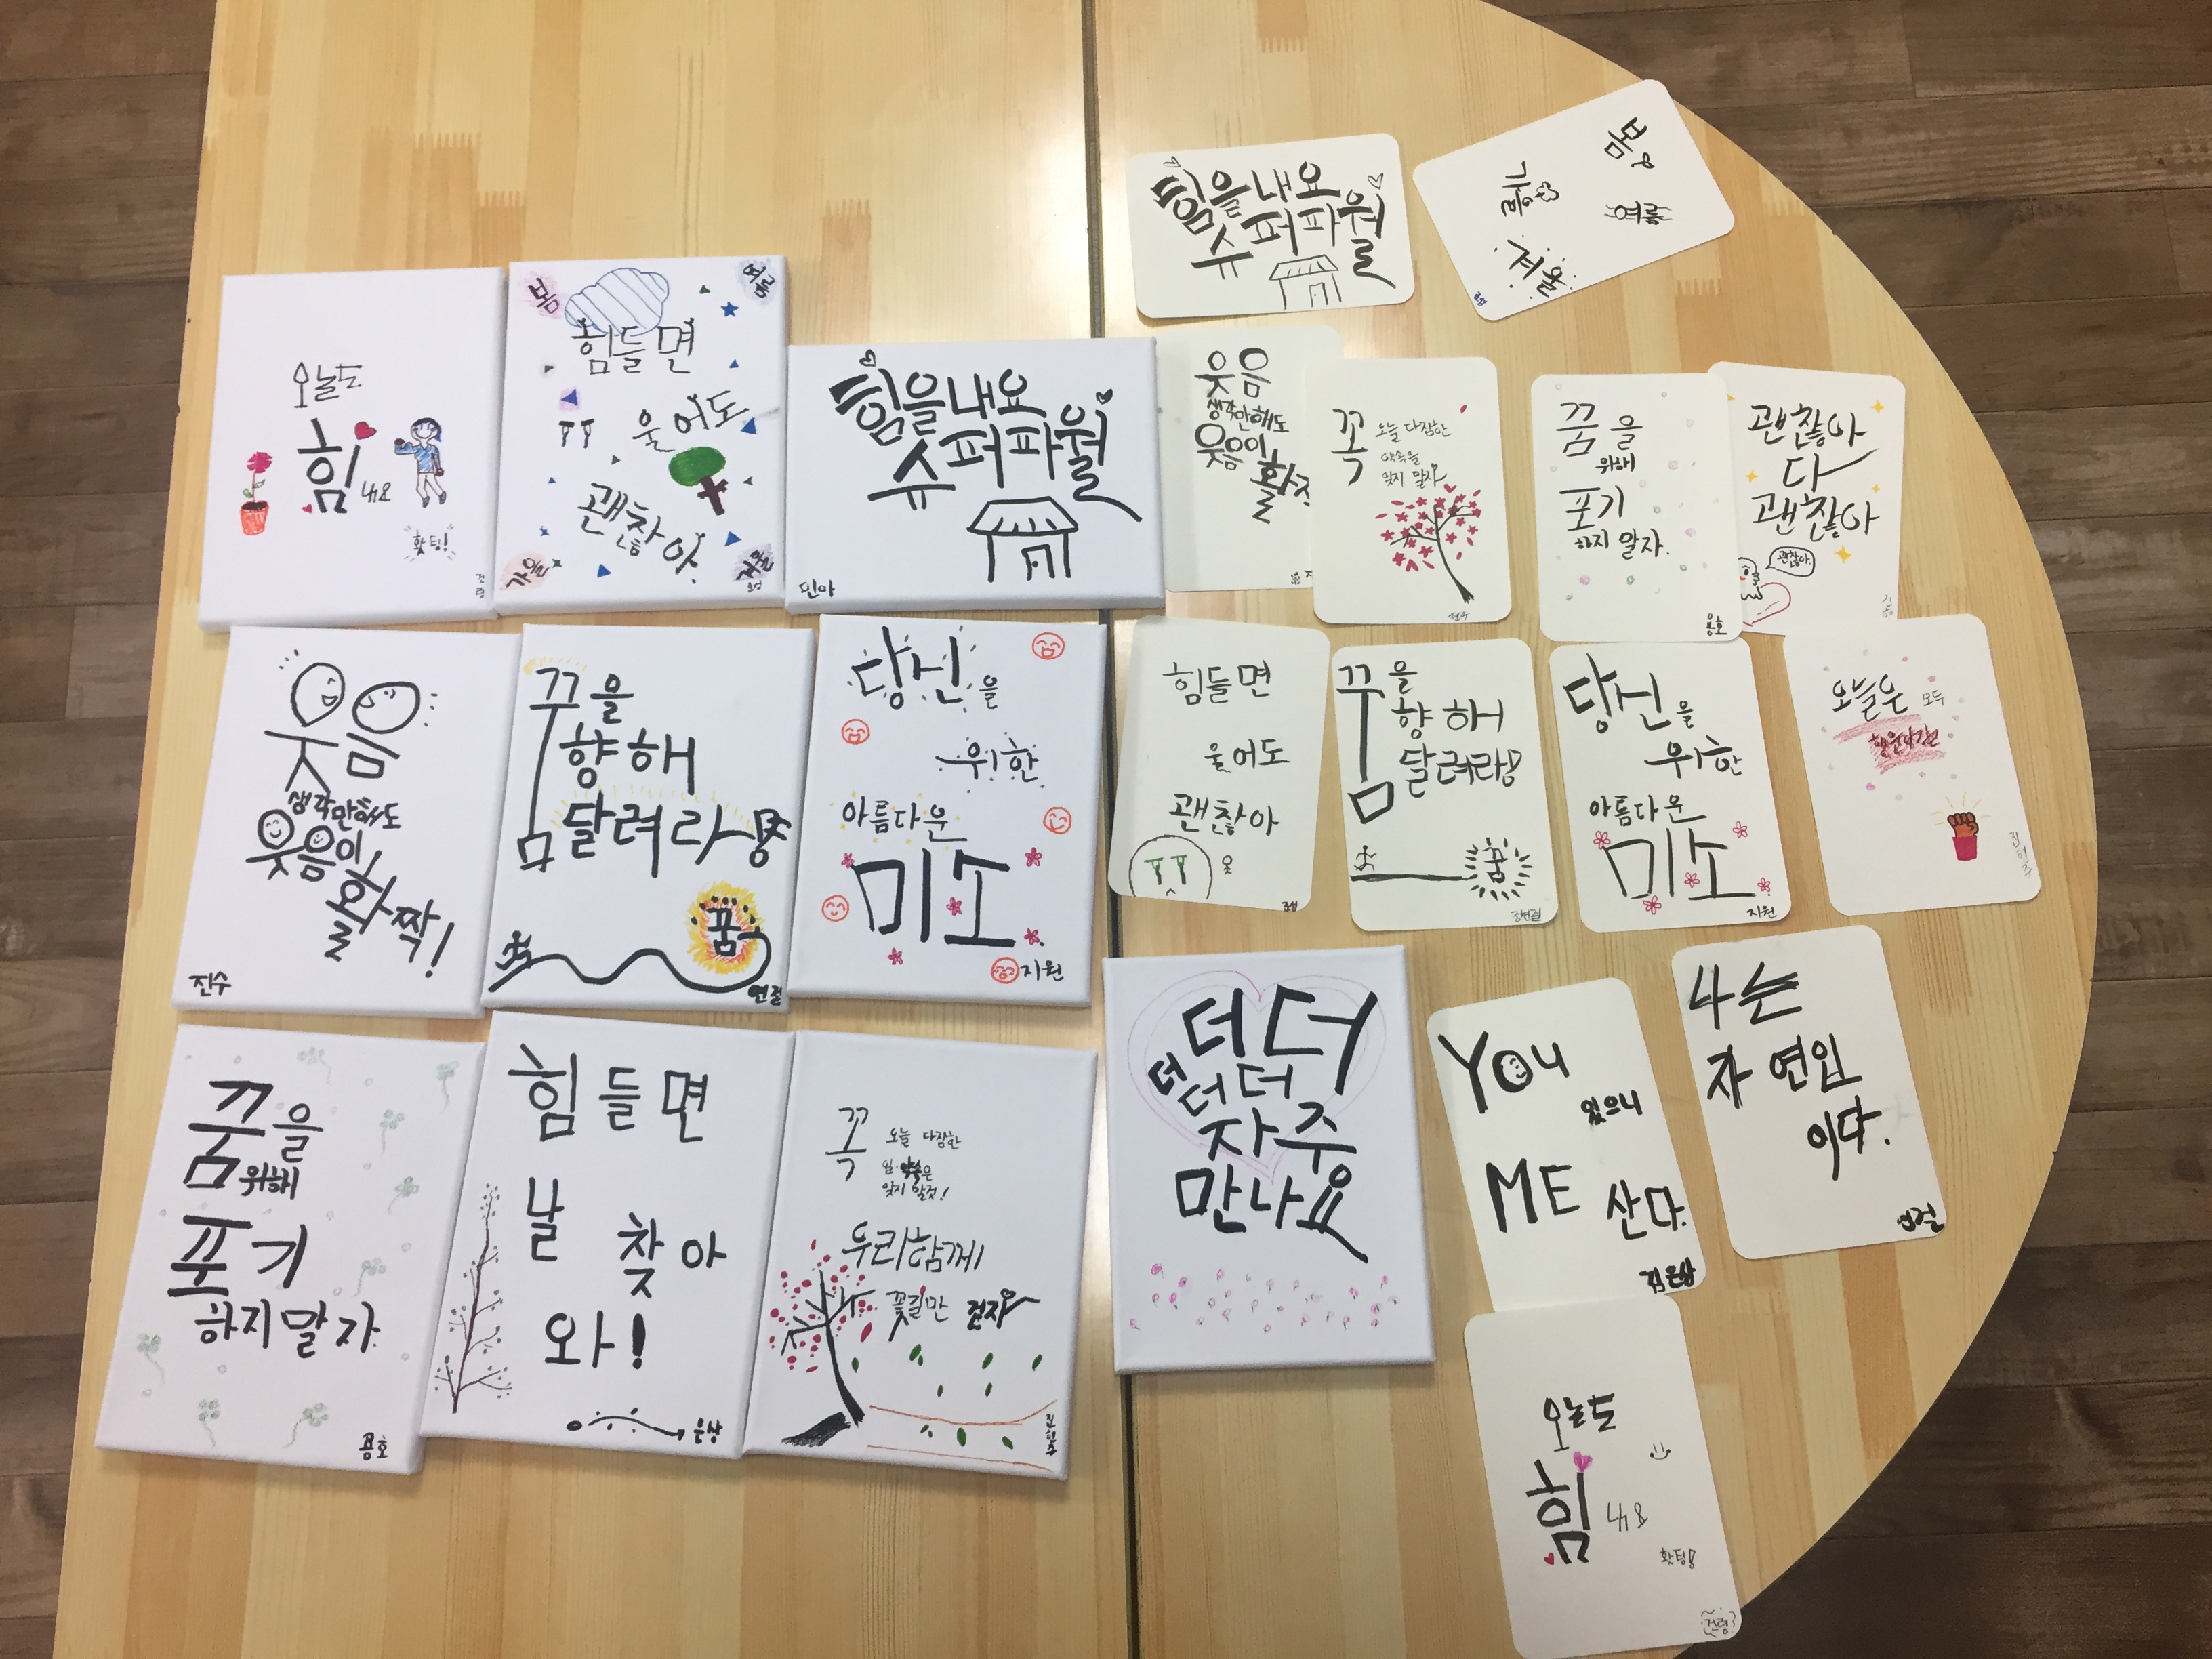 오늘도
힘
내요
홧팅!
봄
여름
힘들면
울어도
괜찮아.
가을
겨울
힘을내요
슈퍼파월
민아
웃음
생각만해도
웃음이
활짝!
진수
꿈을
향해
달려라
꿈
연걸
당신을
위한
아름다운
미소
지원
꿈을
위해
포기
하지말자.
용호
힘들면
날
찾아
와!
은상
꼭 오늘 다짐한
잊지 말것!
우리함께
꽃길만 걷자
진현수
더더
더더더
자주
만나요
힘을내요
슈퍼파월
봄
가을
여름
겨울
웃음
생각만해도
웃음이
활짝
꼭 오늘 다짐한
약속을
잊지 말자
꿈을
위해
포기
하지 말자.
용호
괜찮아
다
괜찮아
괜찮아
힘들면
울어도
괜찮아
꿈을
향해
달려라
꿈
당신을
위한
아름다운
미소
지원
오늘은 모두
You
있으니
ME
산다.
김은상
나는
자연인
이다.
연걸
오늘도
힘
내요
홧팅!
건령